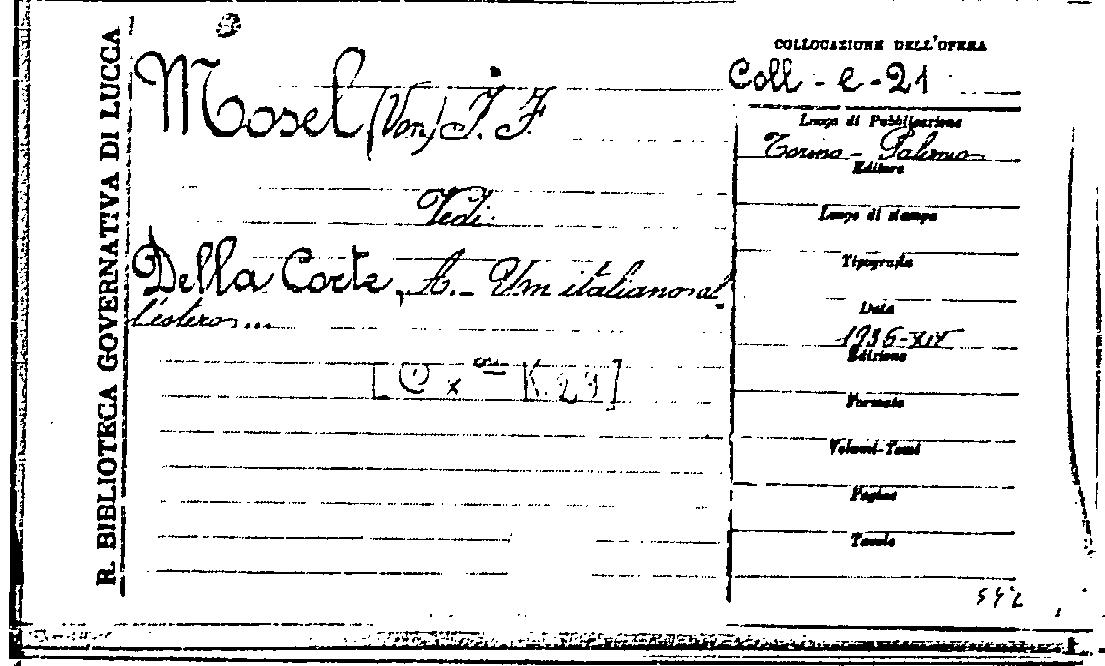 R. BIBLIOTECA GOVERNATIVA DI LUCCA
Mosel (Von) I. F.
Vedi:
Della Corte, A. - Un italiano al-
l'estero...
[C x K. 29]
COLLOCAZIONE DELL'OPERA
Coll - e - 21
Luogo di Pubblicazione
Torino - Palermo
Editore
Luogo di stampa
Tipografia
Data
1936-XIV
Edizione
Formato
Volumi-Tomi
Pagine
Tavole